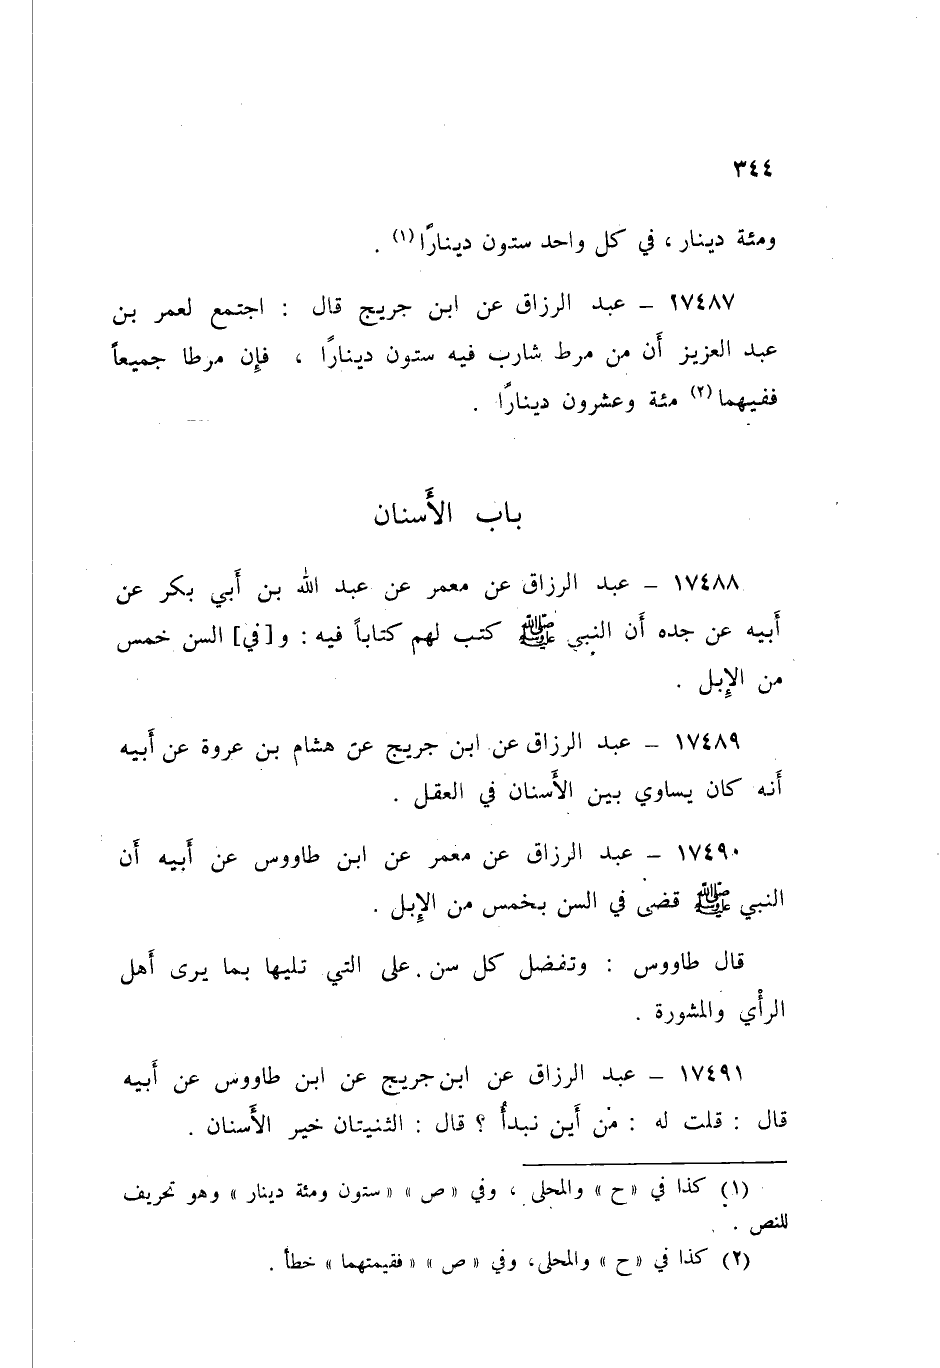 ٣٤٤
ومئة دينار ، في كل واحد ستون دينارًا (١) .
١٧٤٨٧ – عبد الرزاق عن ابن جريج قال : اجتمع لعمر بن
عبد العزيز أن من مرط شارب فيه ستون دينارًا ، فإن مرطا جميعاً
ففيهما (٢) مئة وعشرون دينارًا .
باب الأسنان
١٧٤٨٨ – عبد الرزاق عن معمر عن عبد الله بن أبي بكر عن
أبيه عن جده أن النبي ﷺ كتب لهم كتاباً فيه : و[في] السن خمس
من الإبل .
١٧٤٨٩ – عبد الرزاق عن ابن جريج عن هشام بن عروة عن أبيه
أنه كان يساوي بين الأسنان في العقل .
١٧٤٩٠ – عبد الرزاق عن معمر عن ابن طاووس عن أبيه أن
النبي ﷺ قضى في السن بخمس من الإبل .
قال طاووس : وتفضل كل سن على التي تليها بما يرى أهل
الرأي والمشورة .
١٧٤٩١ – عبد الرزاق عن ابن جريج عن ابن طاووس عن أبيه
قال : قلت له : من أين نبدأُ ؟ قال : الثنيتان خير الأسنان .
(١) كذا في «ح» والمحلى ، وفي «ص» «ستون ومئة دينار» وهو تحريف
للنص .
(٢) كذا في «ح» والمحلى، وفي «ص» «فقيمتهما» خطأ .